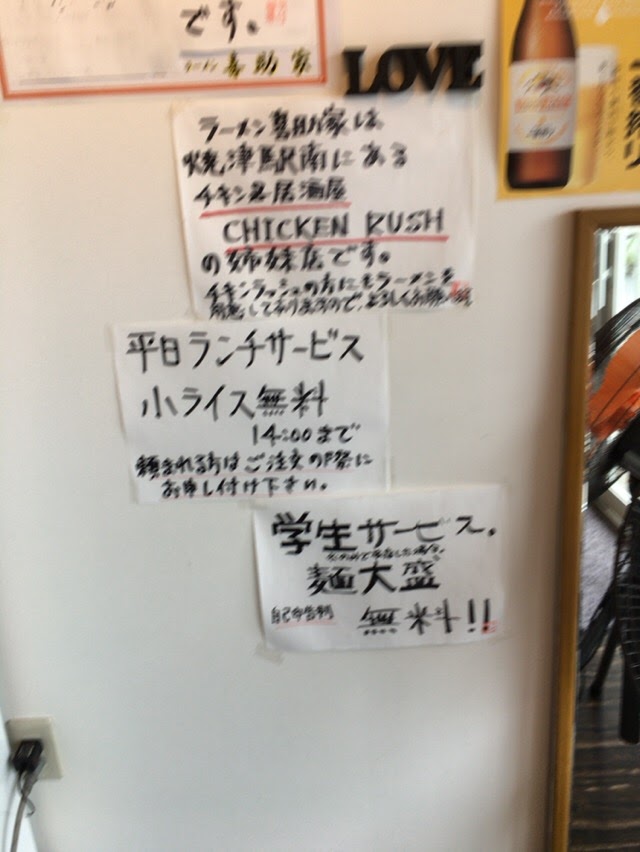 です。
ラーメン 喜助家
LOVE
ラーメン喜助家は
焼津駅南にある
チキンと居酒屋
CHICKEN RUSH
の姉妹店です。
チキンラッシュの方にもラーメンを
用意しておりますので、よろしくお願い
平日ランチサービス
小ライス無料
14:00まで
頼まれる方はご注文の際に
お申し付け下さい。
学生サービス。
麺大盛
自己申告制
無料!!